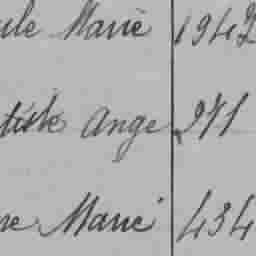 ule Marie 1942
tiste Ange 271
ne Marie 434